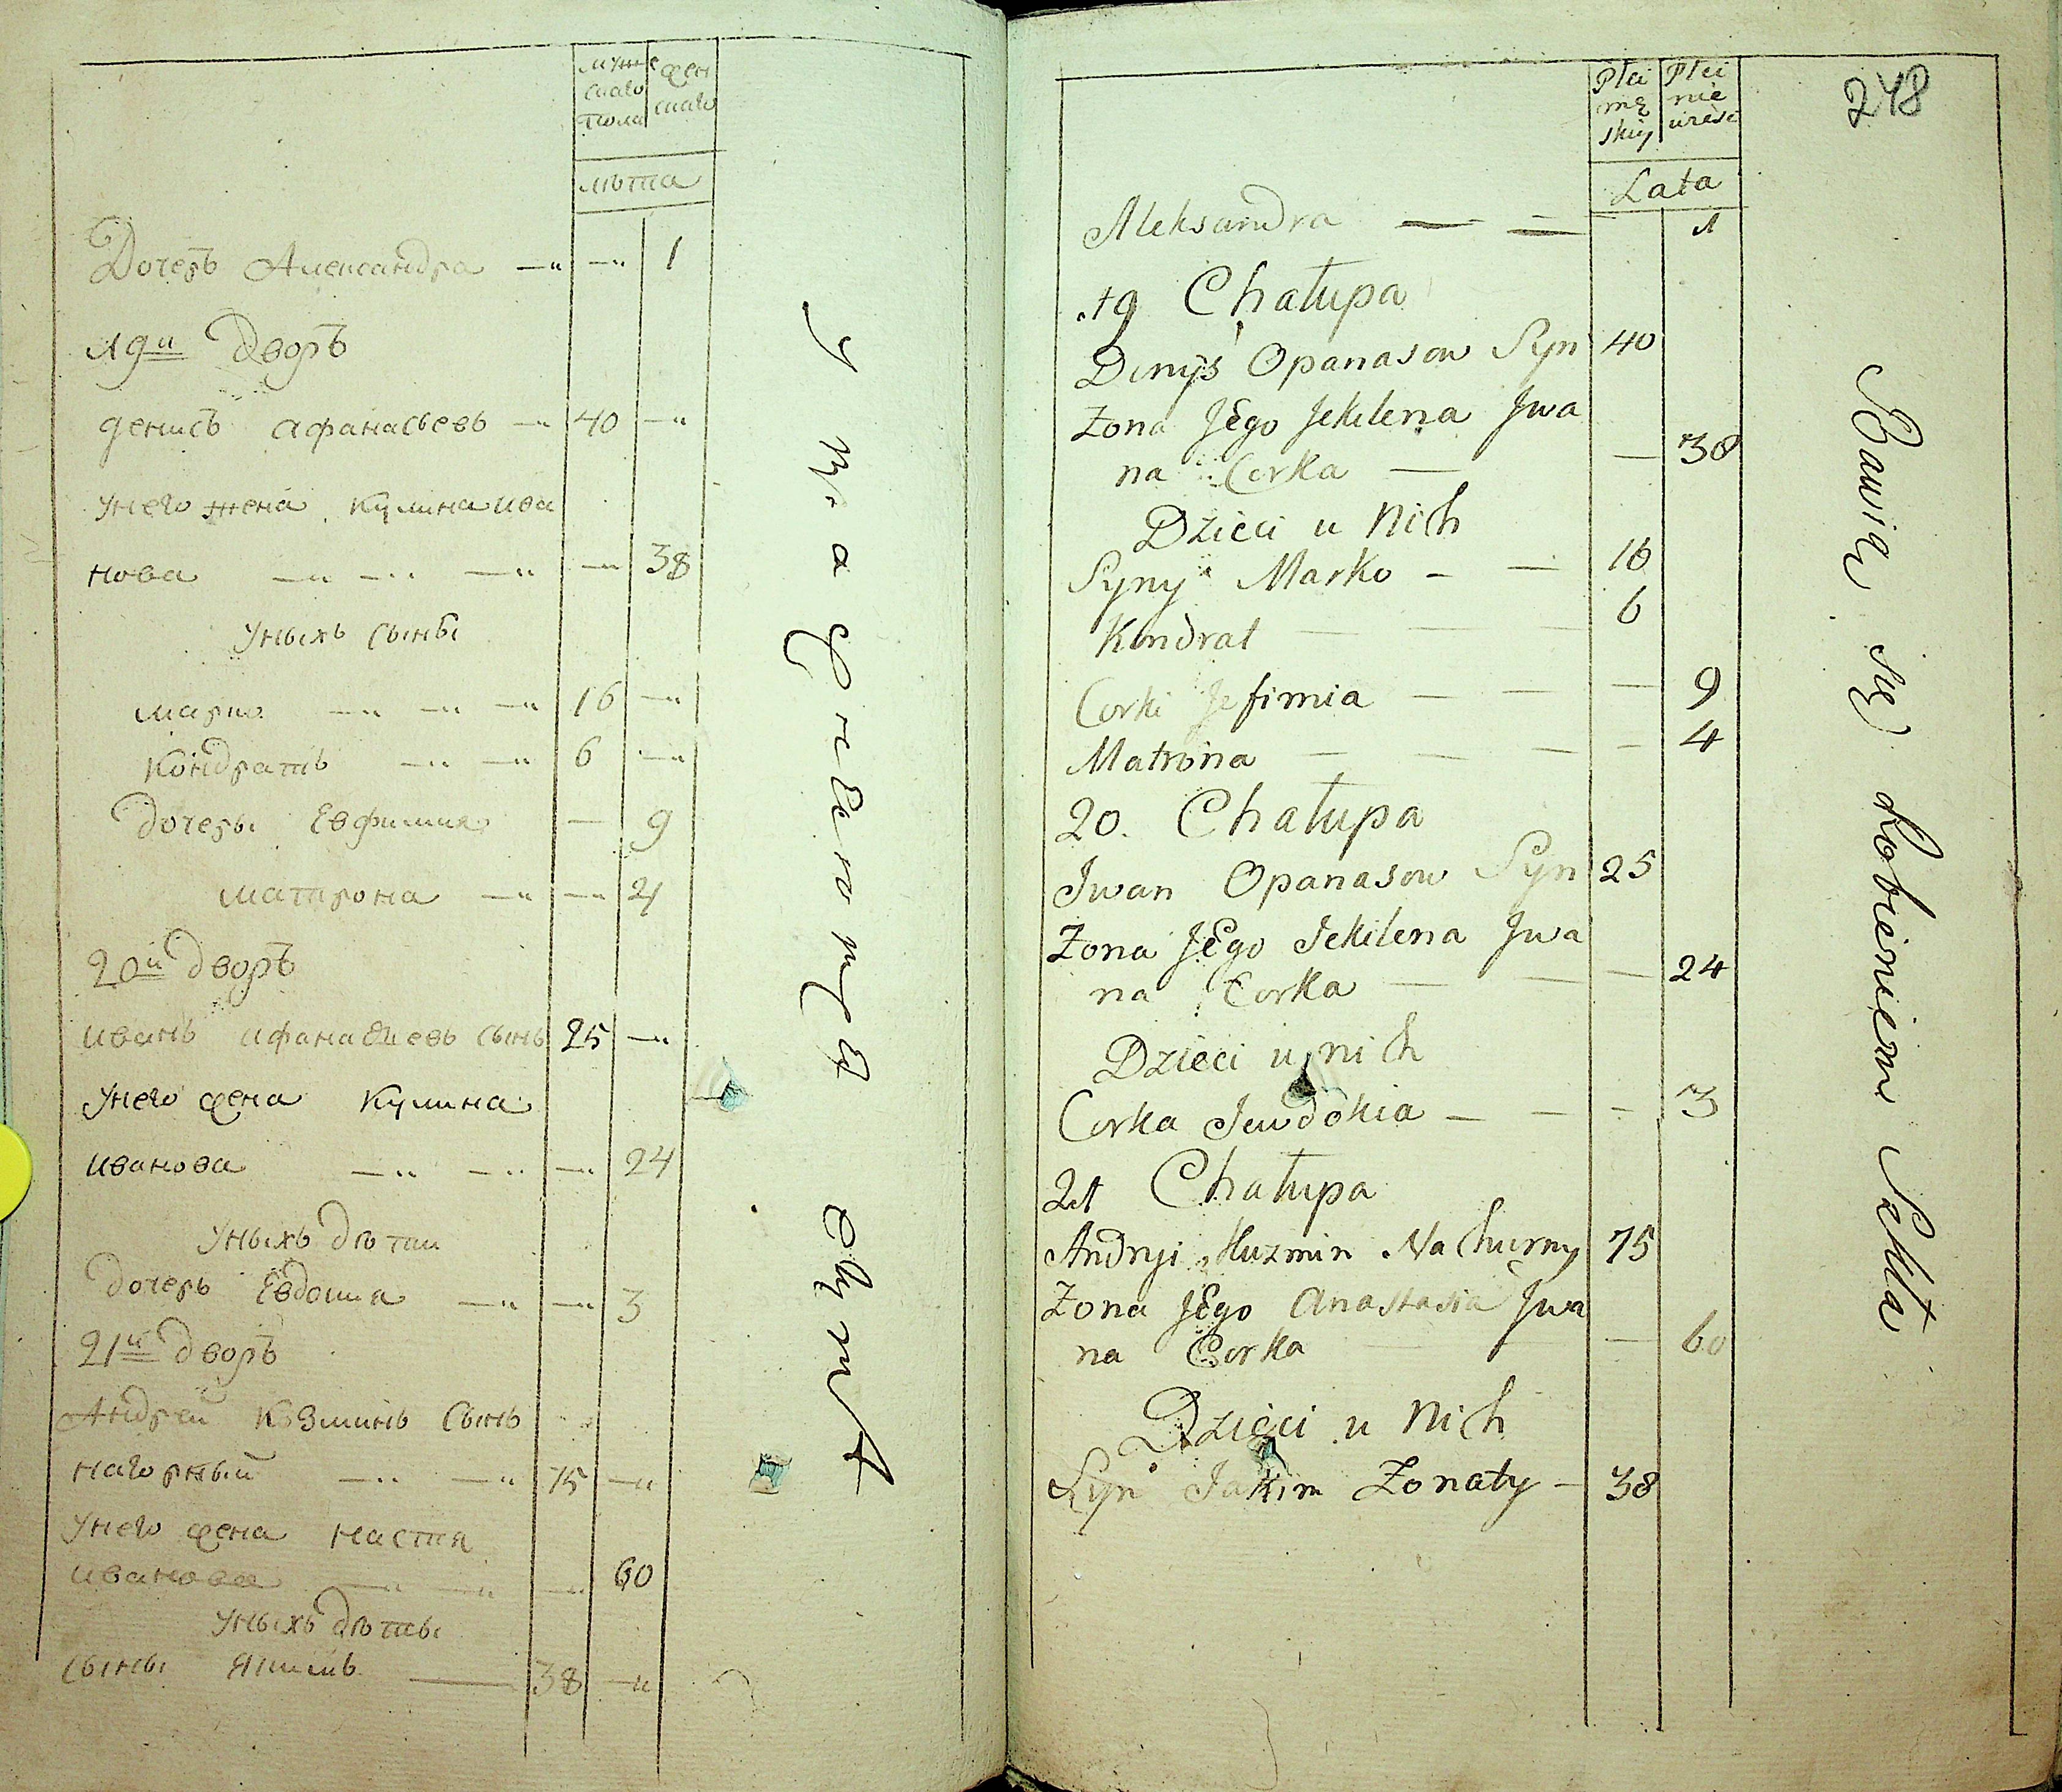 мужескаго пола
женскаго
лѣта
Дочерь Александра —„ —„ 1
19й Дворъ
денисъ афанасьевъ —„ 40 —„
Унего жена Кулина ива
нова —„ —„ —„ —„ 38
Унихъ сыны
марко —„ —„ —„ 16 —„
Кондратъ —„ —„ 6 —„
Дочеры Евфимия — 9
матрона —„ —„ 4
20й дворъ
иванъ афанасиевъ сынъ 25 —„
Унего жена Кулина
иванова —„ —„ —„ 24
Унихъ дѣти
дочерь Евдокиа —„ —„ 3
21й дворъ
Андрей Козминъ Сынъ
нагорный —„ —„ 75 —„
Унего жена настия
иванова —„ —„ —„ 60
Унихъ дѣты
сынъ Якимъ — 38 —„
248
Płci męskiy
Płci
Lata
Aleksandra — — 1
19 Chałupa
Denys Opanasow Syn 40
Żona Jego Jekilena Jwa
na Corka — — 38
Dzieci u Nich
Syny Marko — — 16
Kondrat — — — 6
Corki Jefimia — — — 9
Matrona — — — — 4
20. Chałupa
Jwan Opanasow Syn 25
Żona Jego Jekilena Jwa
na Corka — — — 24
Dzieci u nich
Corka Jewdokia — — — 3
21 Chałupa
Andryi Kuzmin Nahurny 75
Żona Jego Anastasia Jwa
na Corka — — 60
Dzieci u Nich
Syn Jakim Żonaty — 38
Bawią się Robieniem Szkła